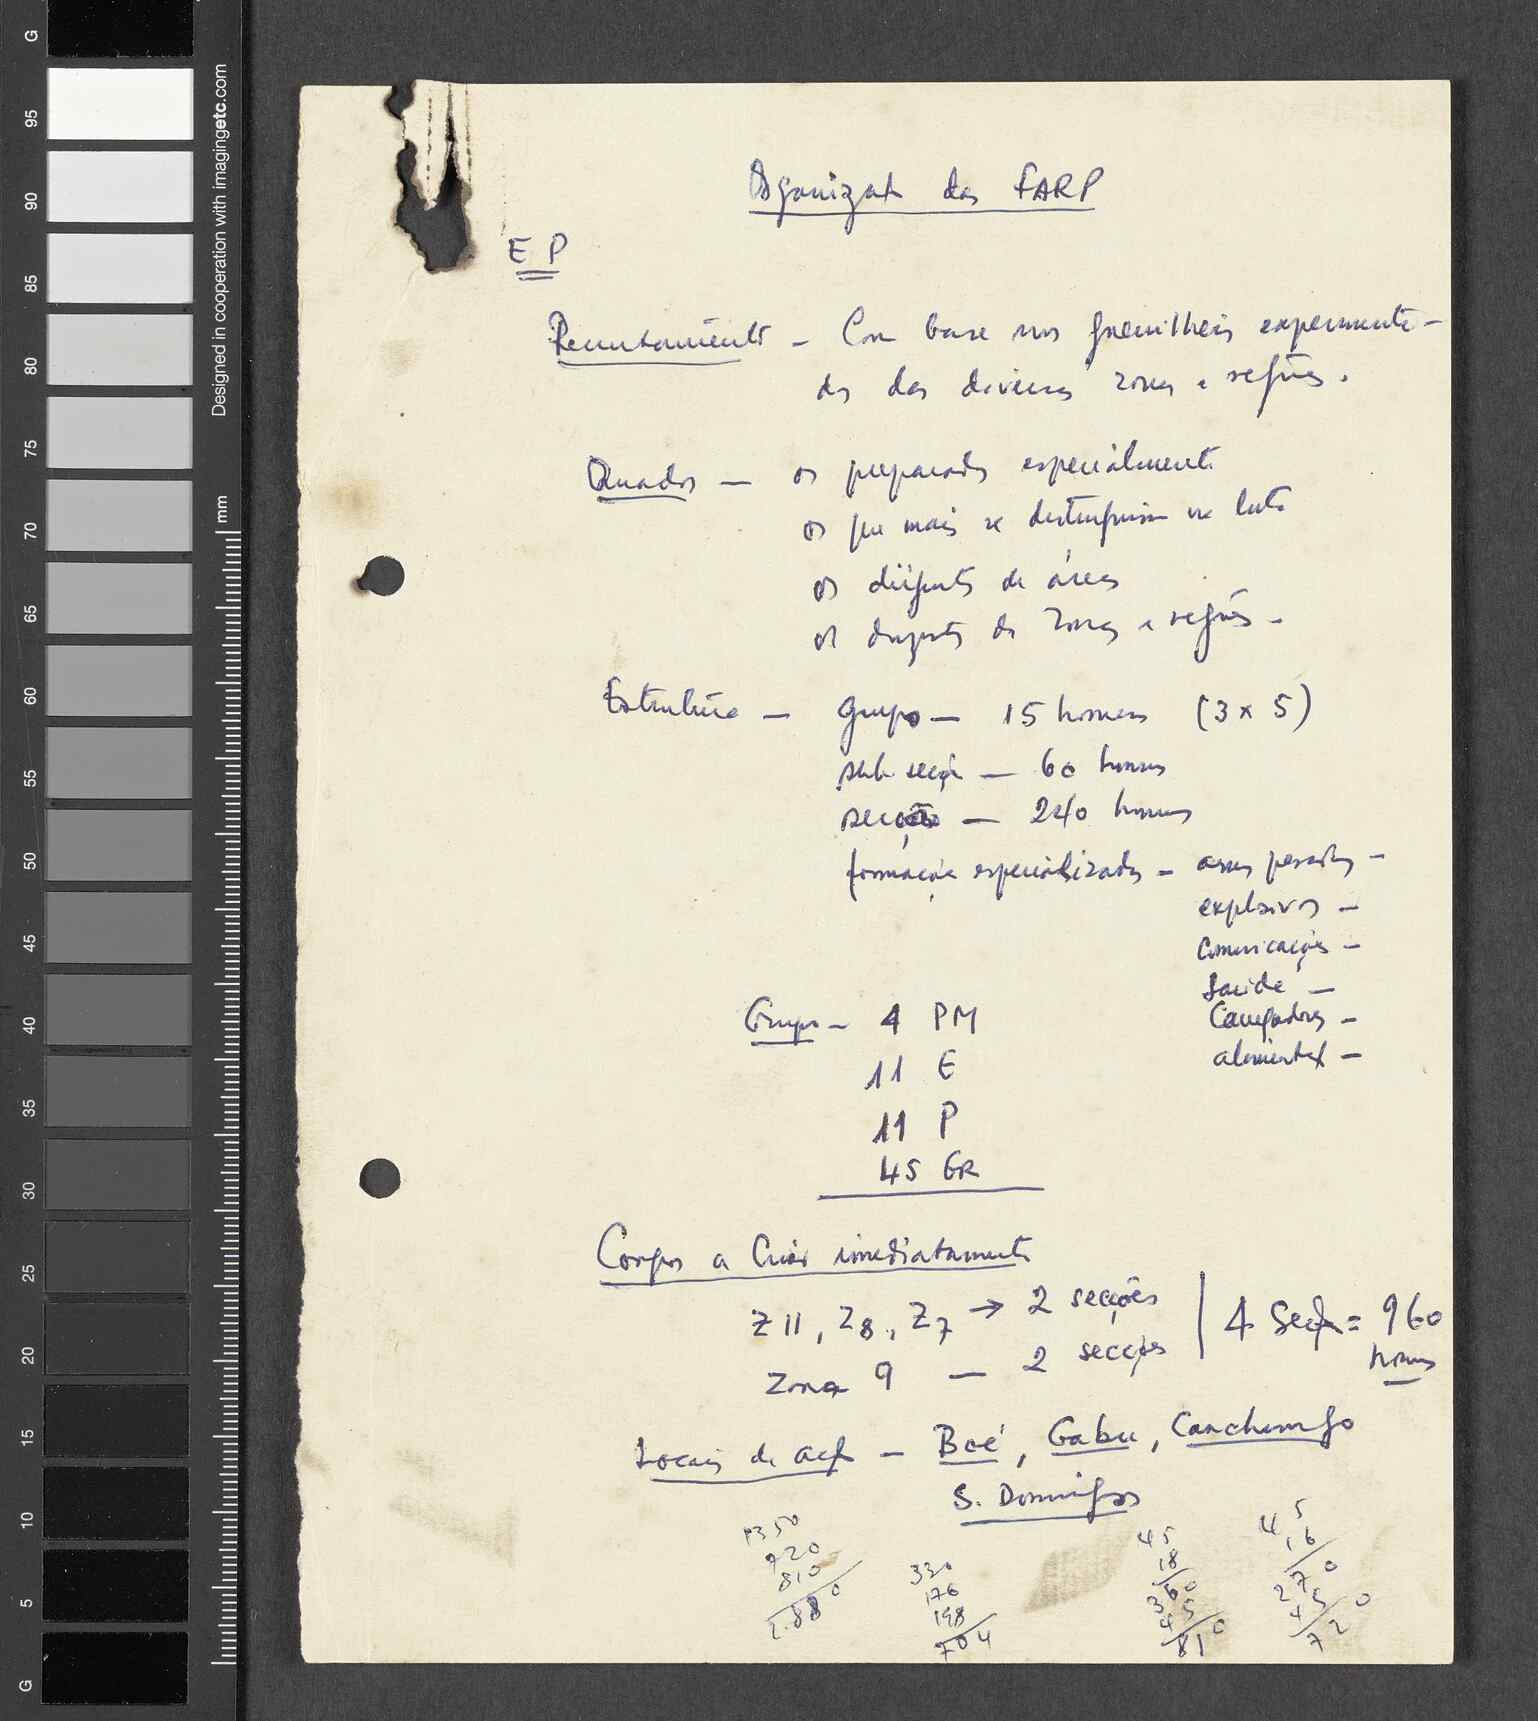 Organizaç das FARP
E P
Recrutamento - Com base nos guerrilheiros experimenta-
dos das diversas zonas e regiões.
Quadros - os preparados especialmente
os que mais se distinguiram na luta
os dirigentes de áreas
os dirigentes de zonas e regiões -
Estrutura - grupo - 15 homens (3 x 5)
sub secção - 60 homens
secção - 240 homens
formação especializados - armas pesadas -
explosivos -
Comunicações -
Saúde -
Grupo - 4 PM
Carregadores -
11 E
alimentaç -
11 P
45 GR
Corpos a Criar imediatamente
Z11, Z8, Z7 → 2 secções
4 Secç = 960
homens
Zona 9 - 2 secções
Locais de acç - Boé, Gabu, Canchungo
S. Domingos
1350
720
810
2.880
330
176
198
704
45
18
360
45
810
45
16
270
45
720
G
95
90
85
80
75
70
65
60
55
50
45
40
35
30
25
20
15
10
5
G
mm
Designed in cooperation with imagingetc.com